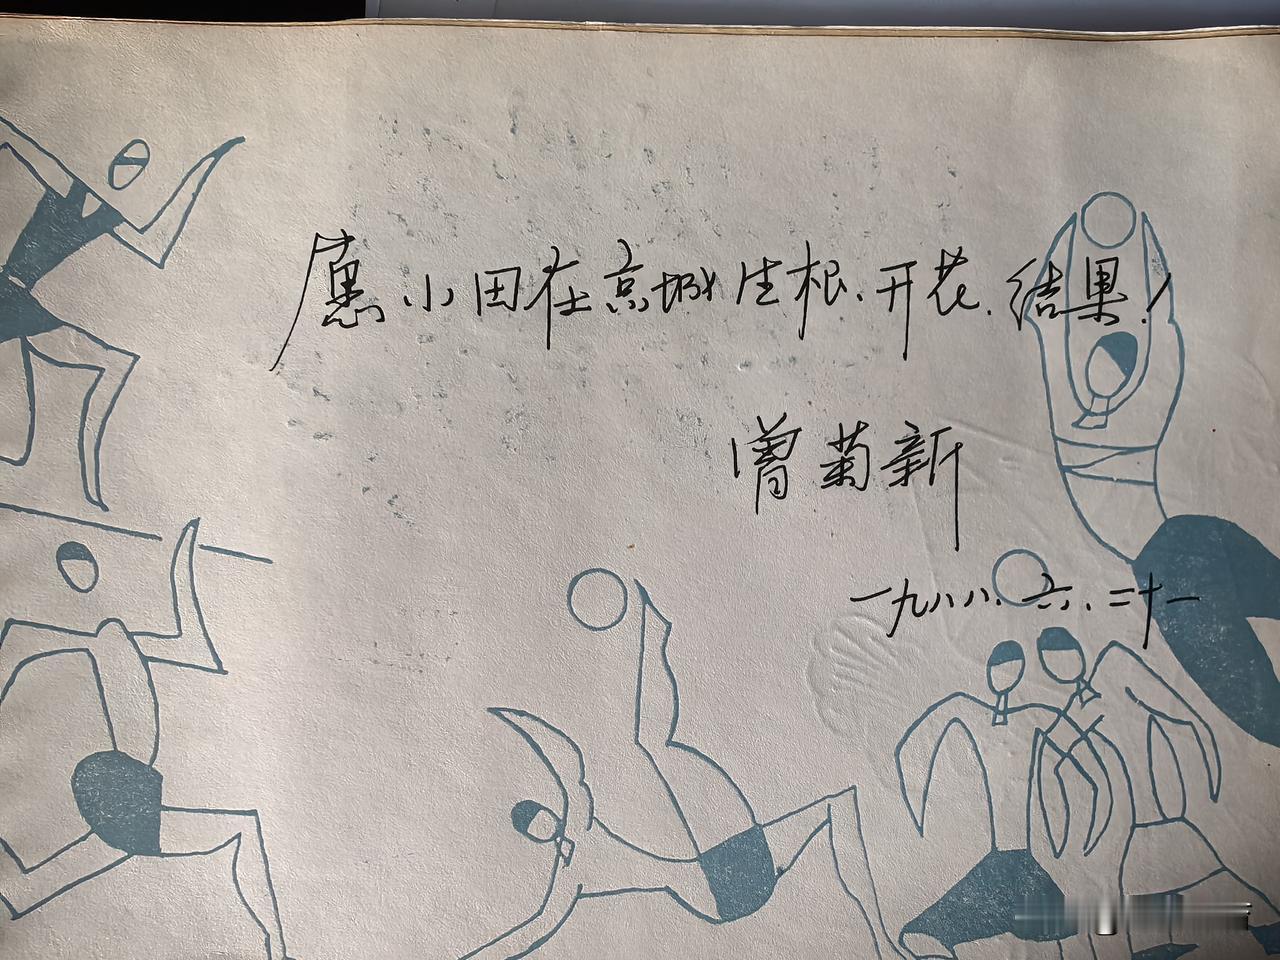 愿小田在京城生根、开花、结果!
曾菊新
一九八八.六.二十一